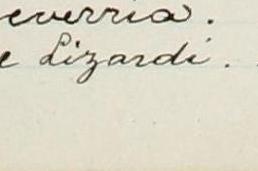 everria.
e Lizardi.